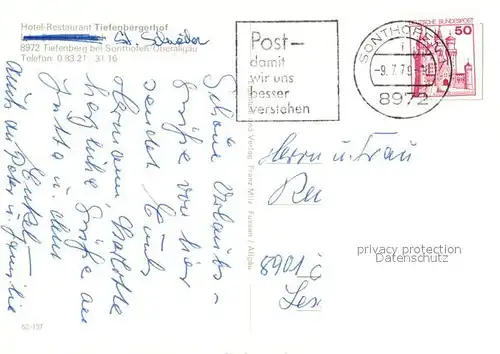 Hotel-Restaurant Tiefenbergerhof
8972 Tiefenberg bei Sonthofen/Oberallgäu
Telefon 0 83 21 31 16
Schöne Urlaubs-
grüße von hier
sendet Euch
Hermann,
herzliche Grüße an
Jutta u.
Enkel
auch an Peter u. Familie
62-137
Verlag Franz Milz Füssen / Allgäu
Post-
damit
wir uns
besser
verstehen
SONTHOFEN
-9.7.79
8972
DEUTSCHE BUNDESPOST
50
Herrn u. Frau
8901
privacy protection
Datenschutz